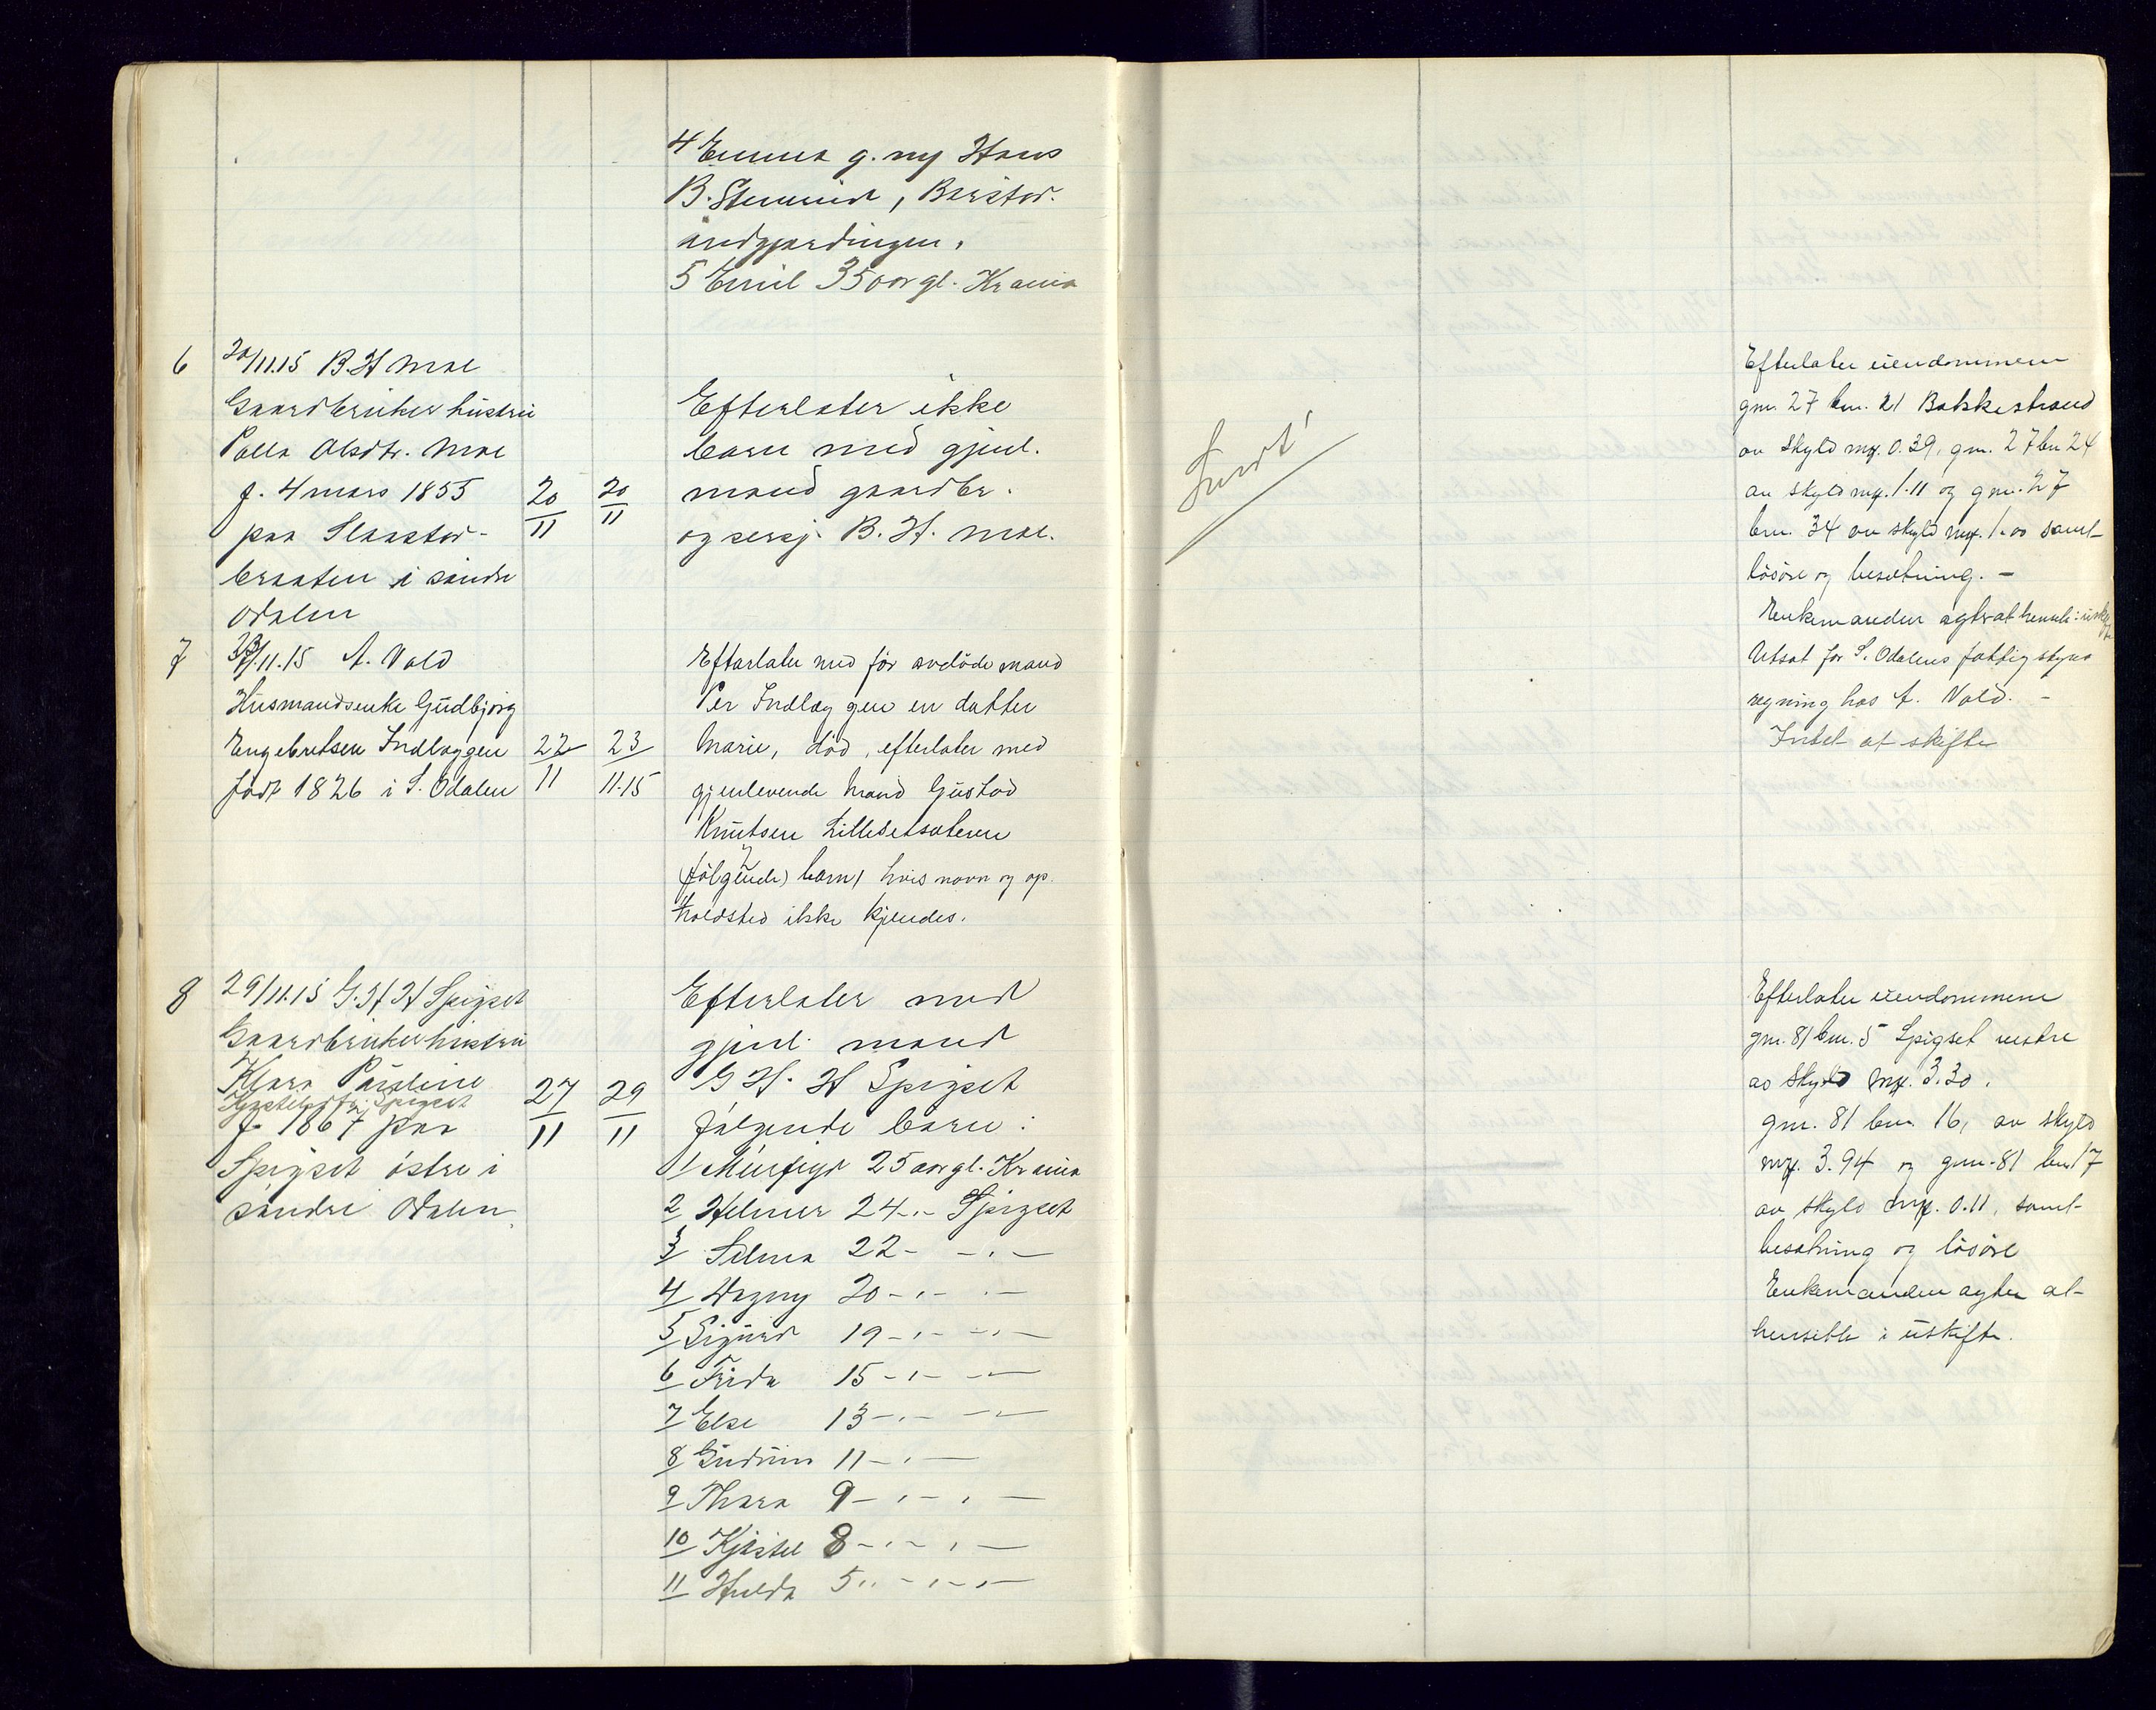 4 Emma g. m/ Hans
B. Stemmid, Barstad.
indgjærdingen,
5 Emil 35 aar gl. Krania
6
20/11.15 B. H Moe
Gaardbruker hustru
Polla Olsdtr. Moe
f. 4 mars 1855
paa Slaastad-
braaten i søndre
Odalen
20/11
20/11
Efterlater ikke
barn med gjenl.
mand gaardbr.
og sersj. B. H. Moe.
Efterlater eiendommene
gnr. 27 bnr. 21 Bakkestrand
av skyld mrk. 0.39, gnr. 27 bn 24
av skyld mrk. 1.11 og gnr. 27
bnr. 34 av skyld mrk. 1.00 samt
løsøre og besætning. –
Enkemanden agter at hensitte i uskifte
7
23/11.15 A. Vold
Husmandsenke Gudbjørg
Engebretsen Indlæggen
født 1826 i S. Odalen
22/11
23/11.15
Efterlater med før avdøde mand
Per Indlæggen en datter
Marie, død, efterlater med
gjenlevende mand Gustad
Knutsen Lillesetsæteren
(følgende) 2 barn, hvis navn og op-
holdsted ikke kjendes.
Utsat for S. Odalens fattigstyres
regning hos A. Vold. –
Intet at skifte
8
29/11.15 G. H H Spigset
Gaardbrukerhustru
Klara Pauline
Kjøstelsdtr. Spigset
f. 1867 paa
Spigset østre i
søndre Odalen
27/11
29/11
Efterlater med
gjenl. mand
G H. H Spigset
følgende barn:
1/ Minfrid 25 aar gl. Krania
2/ Helmer 24 -"- Spigset
3/ Selma 22 - -"-
4/ Dagny 20 -"- -"-
5/ Sigurd 19 -"- -"-
6/ Frida 15 -"- -"-
7/ Else 13 -"- -"-
8/ Gudrun 11 -"-
9/ Thora 9 -"- -"-
10/ Kjøstel 8 -"- -"-
11/ Hulda 5 " -"-
Efterlater eiendommene
gnr. 81 bnr. 5 Spigset vestre
av skyld mrk. 3.30,
gnr. 81 bnr. 16, av skyld
mrk. 3.94 og gnr. 81 bnr 17
av skyld mrk. 0.11, samt
besætning og løsøre
Enkemanden agter at
hensitte i uskifte.